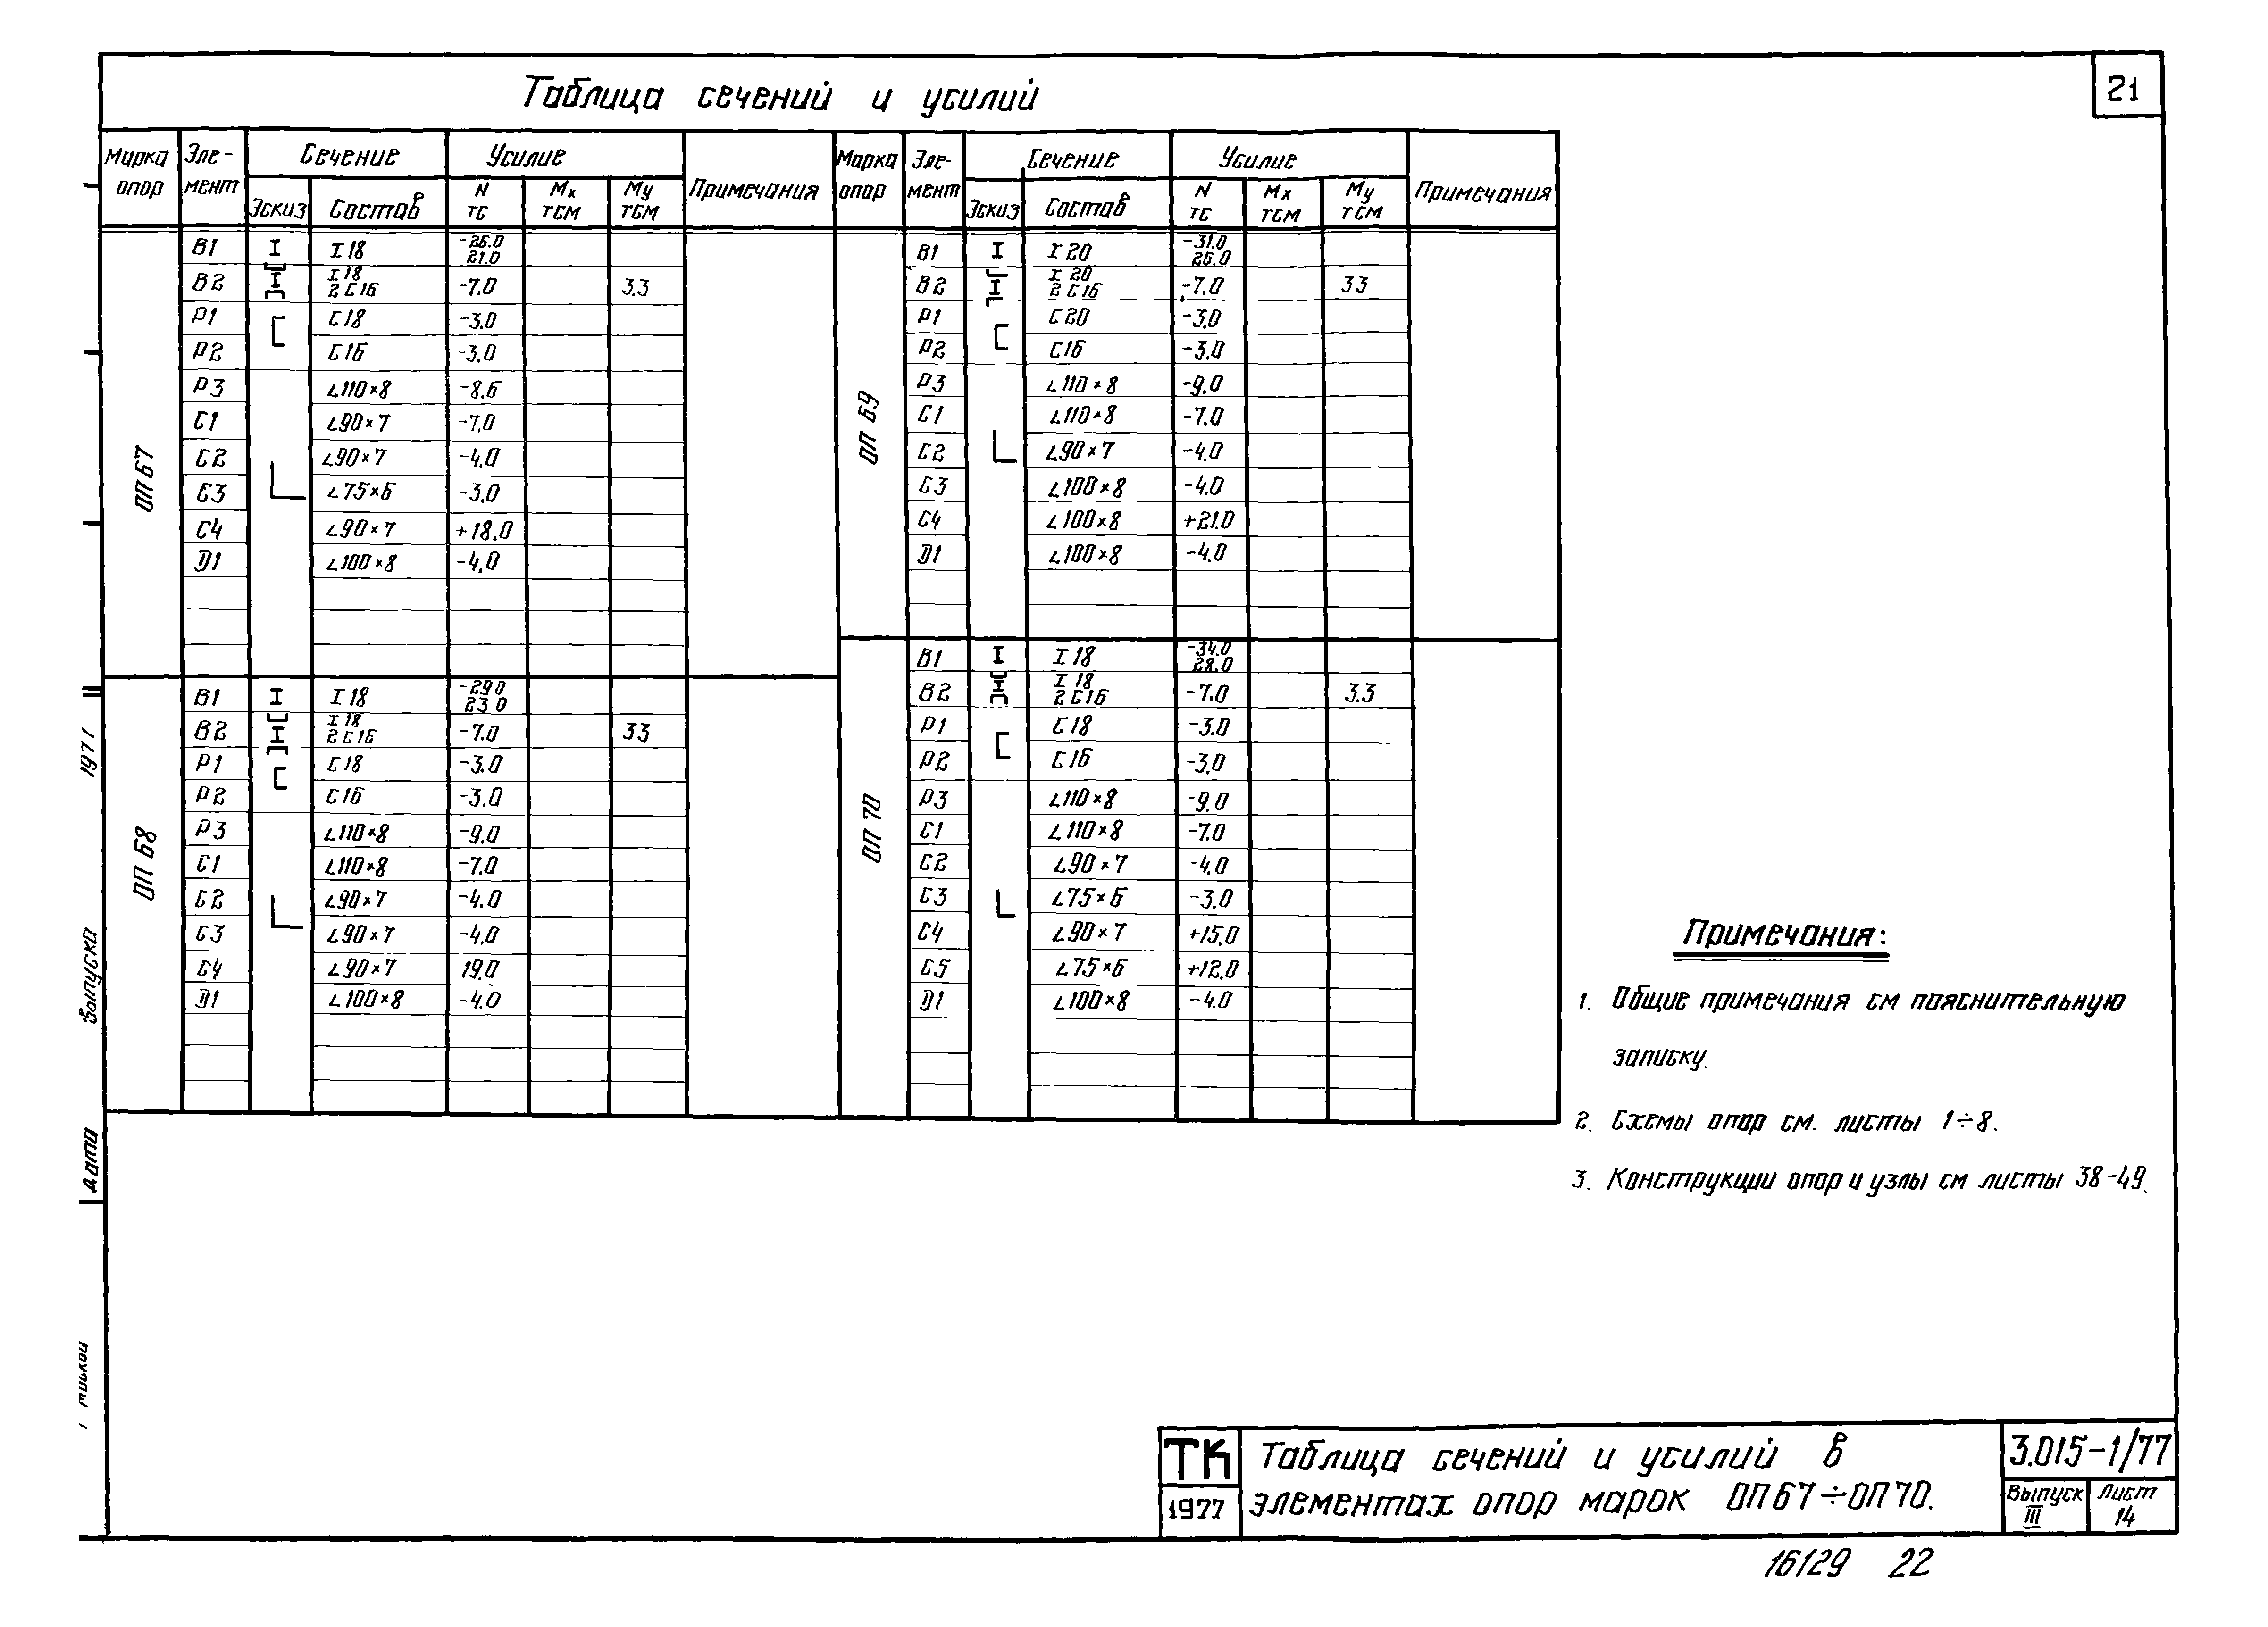 21
Таблица сечений и усилий
Марка опор | Эле-мент | Сечение | Усилие | Примечания | Марка опор | Эле-мент | Сечение | Усилие | Примечания
Эскиз | Состав | N тс | Mx тсм | My тсм | Эскиз | Состав | N тс | Mx тсм | My тсм
ОП 67
В1 I I 18 -26.0 21.0
В2 I I 18 2 С16 -7.0 3.3
Р1 С18 -3.0
Р2 С16 -3.0
Р3 ∟110×8 -8.6
С1 ∟90×7 -7.0
С2 ∟90×7 -4.0
С3 ∟75×6 -3.0
С4 ∟90×7 +18.0
D1 ∟100×8 -4.0
ОП 68
В1 I I 18 -29 0 23 0
В2 I I 18 2 С16 -7.0 3 3
Р1 С18 -3.0
Р2 С16 -3.0
Р3 ∟110×8 -9.0
С1 ∟110×8 -7.0
С2 ∟90×7 -4.0
С3 ∟90×7 -4.0
С4 ∟90×7 19.0
D1 ∟100×8 -4.0
ОП 69
В1 I I 20 -31.0 26.0
В2 I I 20 2 С16 -7.0 3 3
Р1 С20 -3.0
Р2 С16 -3.0
Р3 ∟110×8 -9.0
С1 ∟110×8 -7.0
С2 ∟90×7 -4.0
С3 ∟100×8 -4.0
С4 ∟100×8 +21.0
D1 ∟100×8 -4.0
ОП 70
В1 I I 18 -34.0 28.0
В2 I I 18 2 С16 -7.0 3.3
Р1 С18 -3.0
Р2 С16 -3.0
Р3 ∟110×8 -9.0
С1 ∟110×8 -7.0
С2 ∟90×7 -4.0
С3 ∟75×6 -3.0
С4 ∟90×7 +15.0
С5 ∟75×6 +12.0
D1 ∟100×8 -4.0
Примечания:
1. Общие примечания см пояснительную
записку.
2. Схемы опор см. листы 1÷8.
3. Конструкции опор и узлы см листы 38-49.
1971
выпуска
дата
ТК
1977
Таблица сечений и усилий в
элементах опор марок ОП67÷ОП70.
3.015-1/77
Выпуск III
Лист 14
16129 22